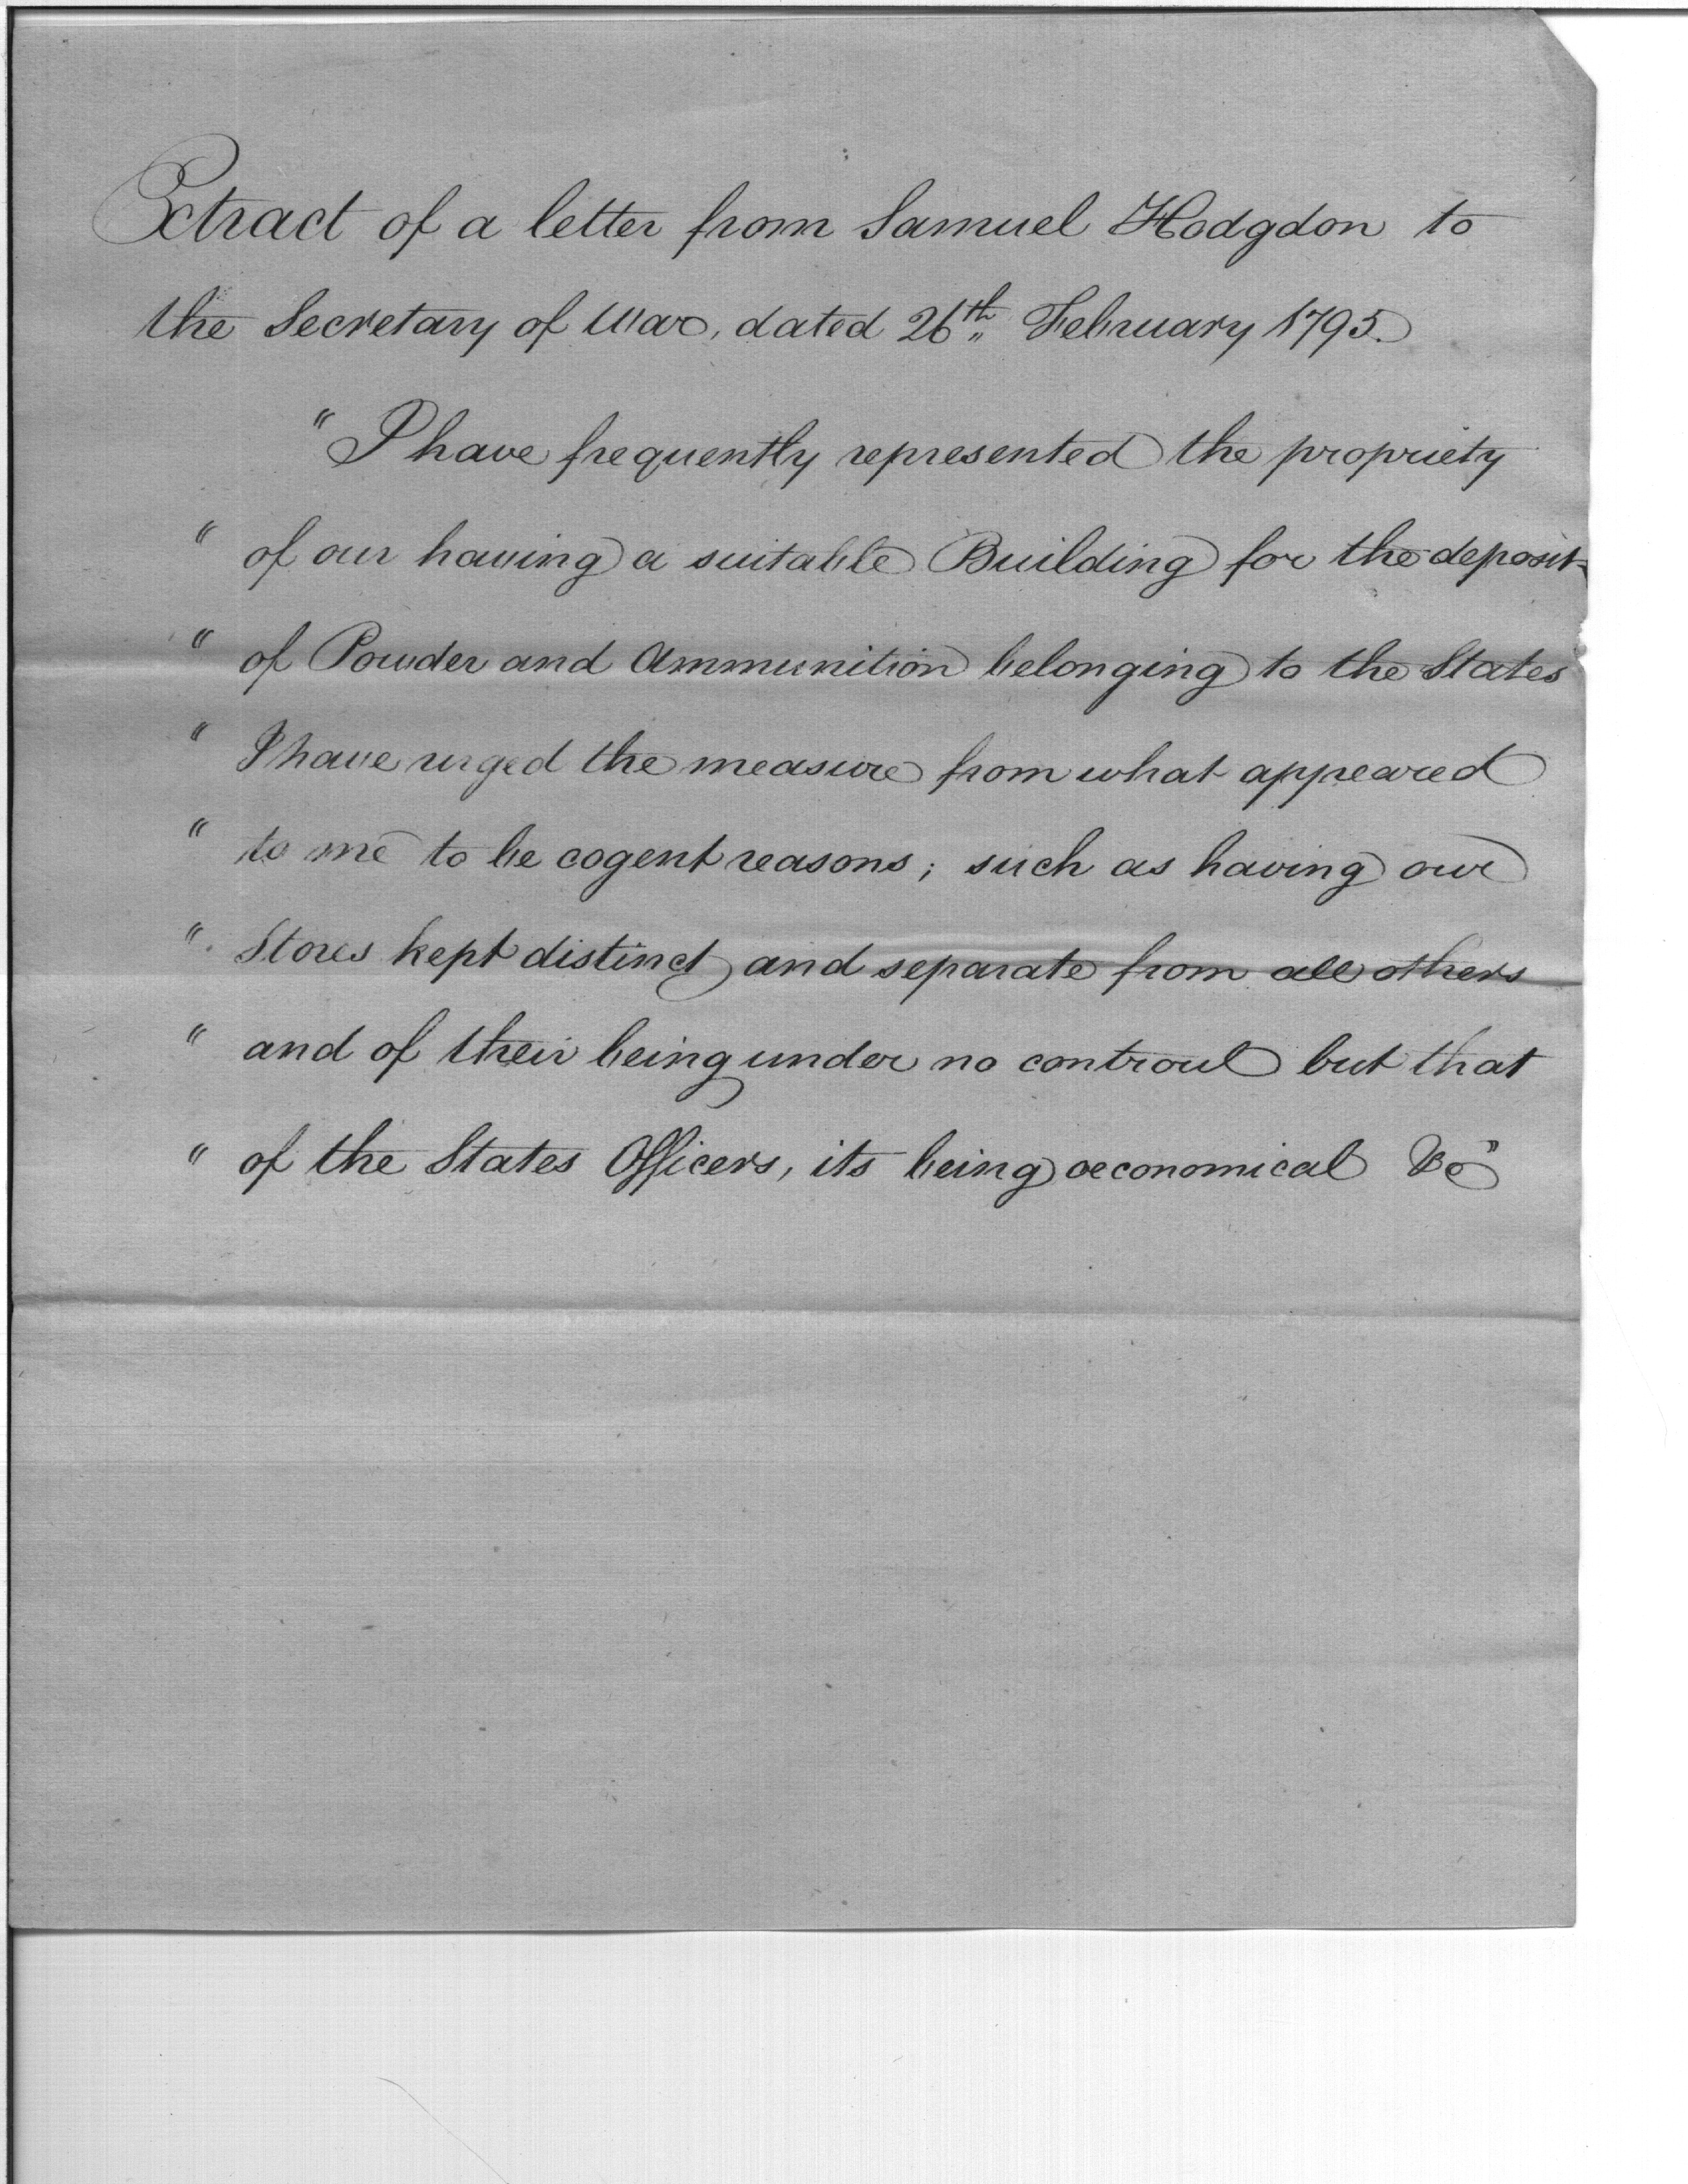 Extract of a letter from Samuel Hodgdon to
the Secretary of War, dated 26th February 1795.
"I have frequently represented the propriety
" of our having a suitable Building for the deposit
" of Powder and Ammunition belonging to the States
" I have urged the measure from what appeared
" to me to be cogent reasons; such as having our
" Stores kept distinct and separate from all others
" and of their being under no controul but that
" of the States Officers, its being oeconomical &c"